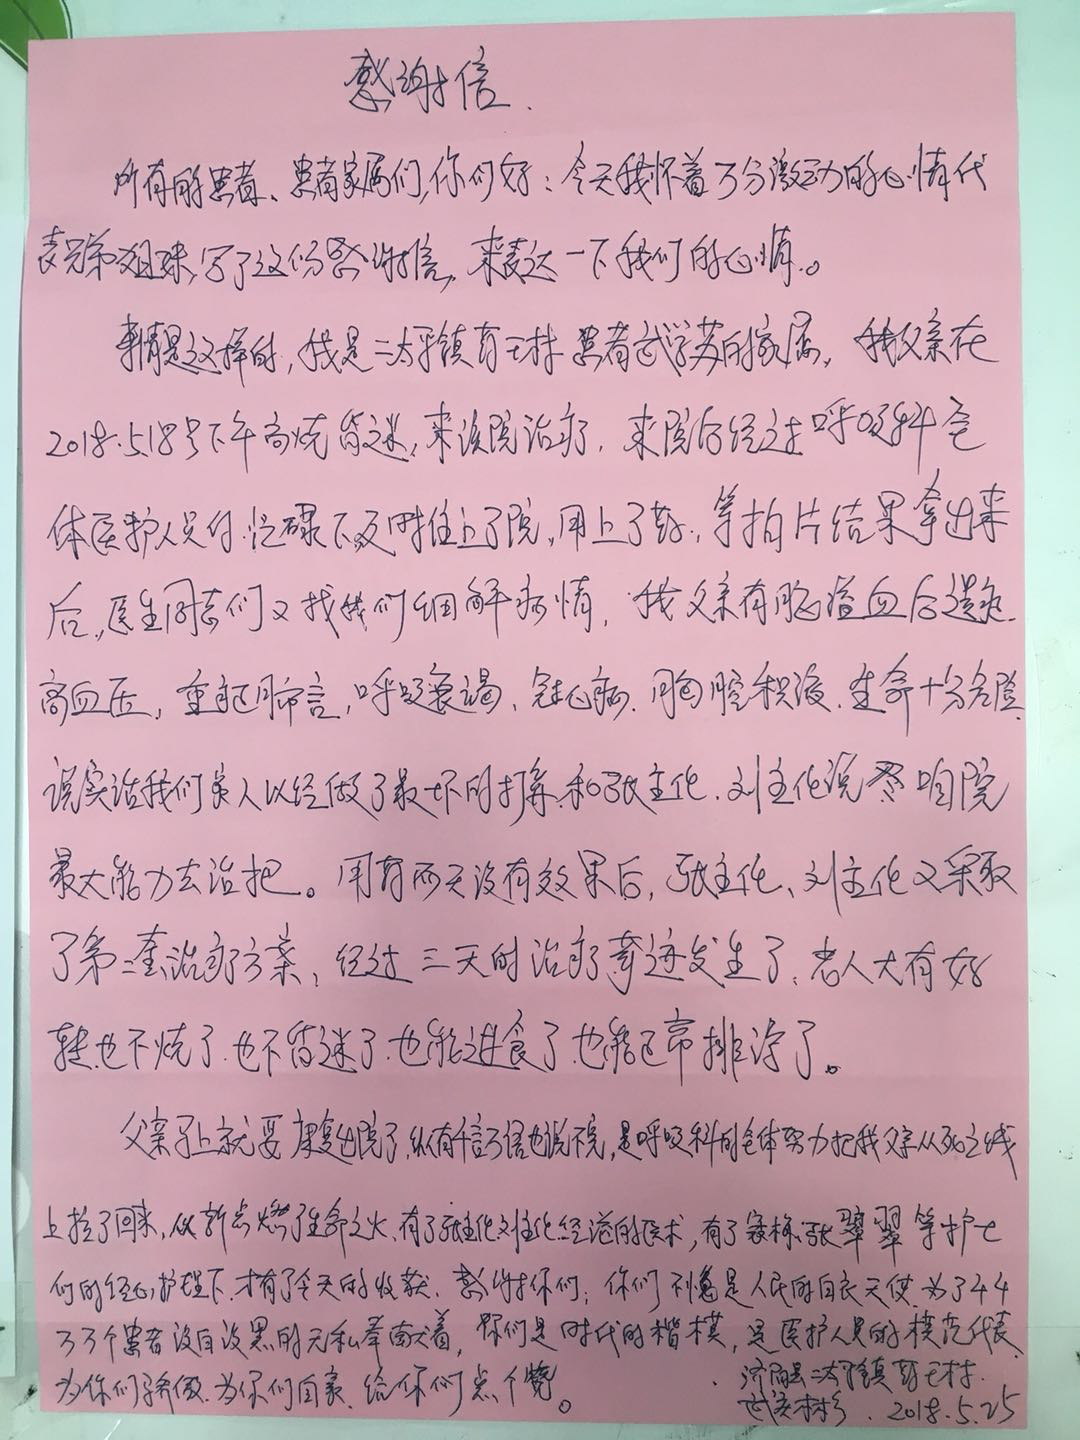 感谢信.
所有的患者、患者家属们,你们好:今天我怀着万分激动的心情代
表兄弟姐妹,写了这份感谢信,来表达一下我们的心情。
事情是这样的,我是二太平镇 王村患者武学苏的家属,我父亲在
2018.5.18号下午高烧昏迷,来该院治疗,来院后经过呼吸科全
体医护人员付 忙碌下及时住上了院,用上了药,等拍片结果拿出来
后,医生同志们又找我们细解病情,我父亲有脑溢血后遗症.
高血压,重症肺 ,呼吸衰竭、冠心病.胸腔积液.生命十分危险.
说实话我们家人以经做了最坏的打算.和张主任.刘主任说尽咱院
最大能力去治把。用药两天没有效果后,张主任、刘主任又采取
了第二套治疗方案,经过三天的治疗奇迹发生了,老人大有好
转.也不烧了.也不昏迷了.也能进食了.也能正常排净了。
父亲马上就要康复出院了,纵有千言万语也说不完,是呼吸科的全体努力把我父亲从死亡线
上拉了回来,从新点燃了生命之火,有了张主任刘主任 的医术,有了 张翠翠等护士
们的 心护理下,才有了今天的收获.感谢你们;你们不愧是人民的白衣天使.为了千千
万万个患者没白没黑的无私奉献着,你们是时代的楷模,是医护人员的模范代表
为你们骄傲.为你们自豪.给你们点个赞。
济 县二太平镇 王村.
武 彬.2018.5.25